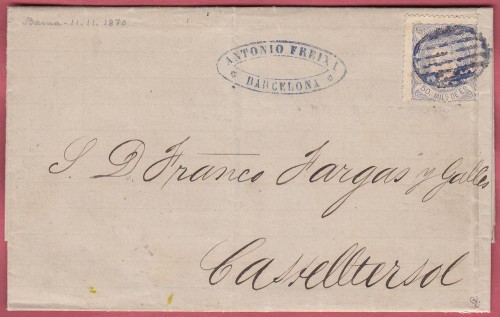 Barna - 11.11.1870
ANTONIO FREIXA
BARCELONA
50 MILS DE E.
S. D. Franco Fargas y Galles
Castelltersol